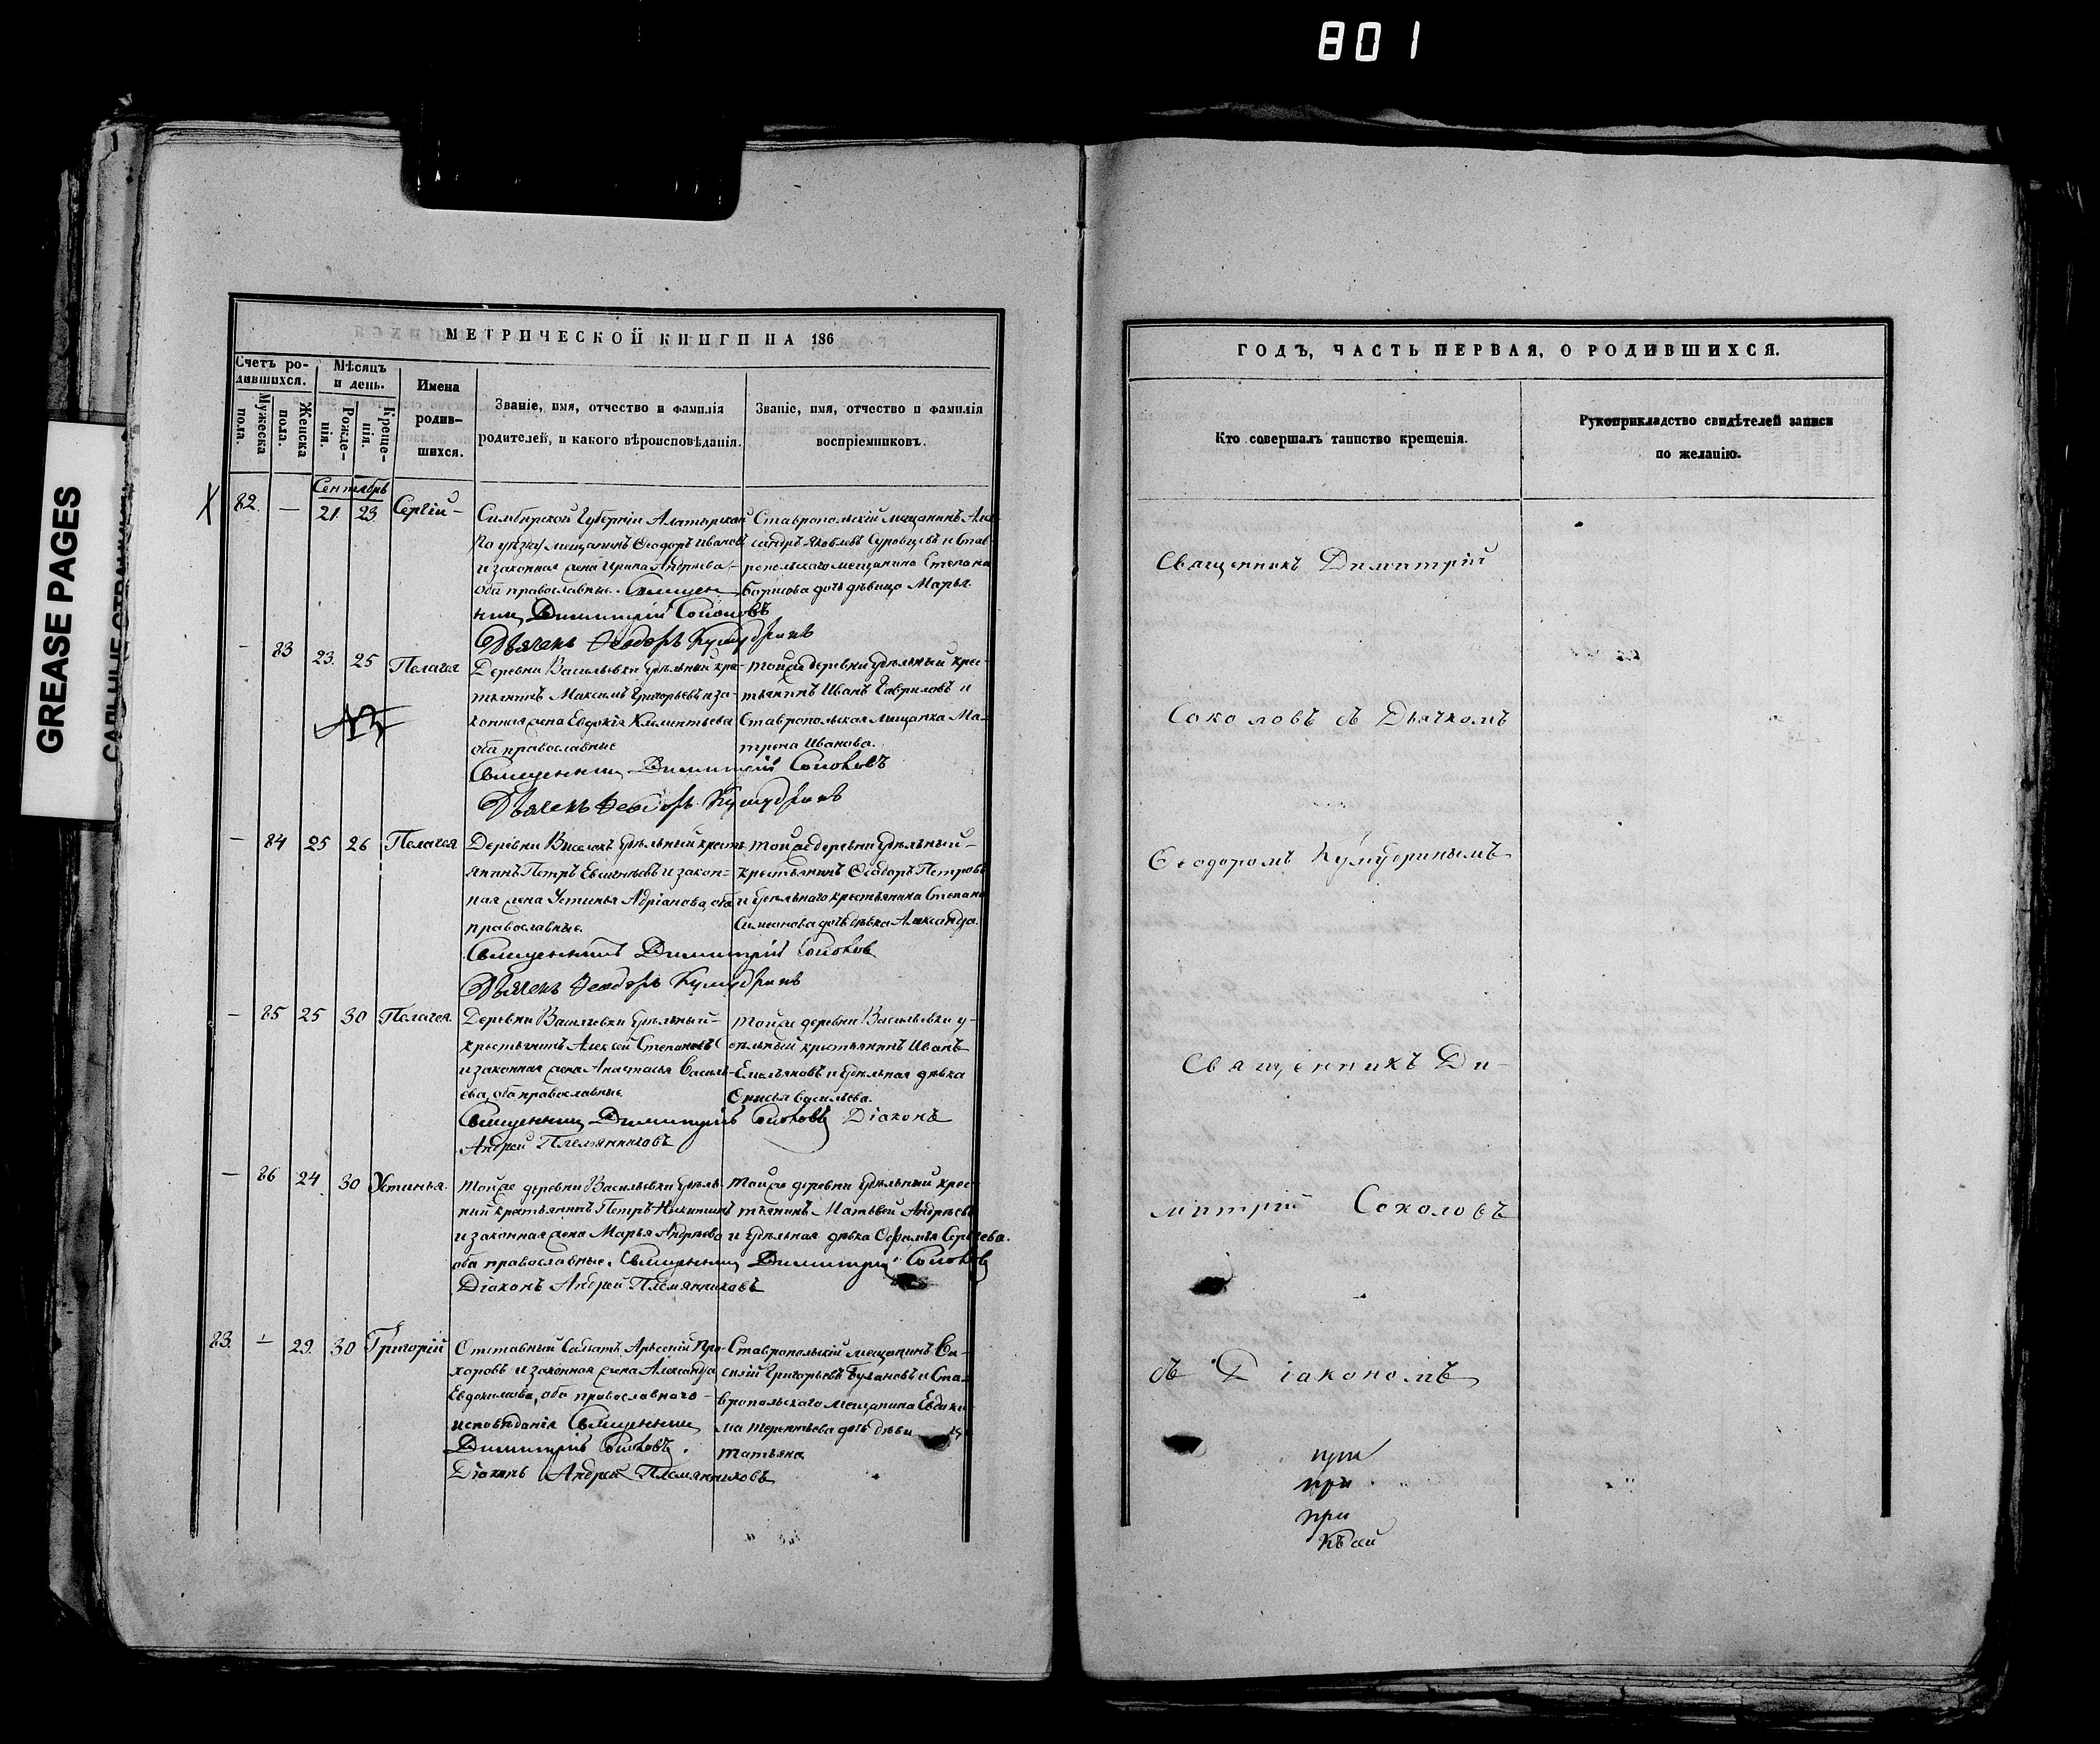 801
GREASE PAGES
МЕТРИЧЕСКОЙ КНИГИ НА 186
Счетъ ро-
дившихся.
Мѣсяцъ
и день.
Имена
родив-
шихся.
Мужеска
пола.
Женска
пола.
Рожде-
нія.
Креще-
нія.
Званіе, имя, отчество и фамилія
родителей, и какого вѣроисповѣданія.
Званіе, имя, отчество и фамилія
воспріемниковъ.
Сентябрь
82. — 21. 23 Сергій
Симбирской Губерніи Алатырска
го уѣзда мещанинъ Ѳеодоръ Ивановъ
и законная жена Ирина Андреева,
оба православные. Священ
никъ Димитрій Соколовъ
Дьячекъ Ѳеодоръ Кумудринъ
Ставропольскій мещанинъ Алек
сандръ Яковлевъ Суровцевъ и Став-
ропольскаго мещанина Степана
Борисова дочь дѣвица Марья.
— 83 23. 25 Пелагея
Деревни Васильевки удѣльный кре-
стьянинъ Максимъ Григорьевъ и за-
конная жена Евдокія Климентьева
оба православные
Священникъ Димитрій Соколовъ
Дьячекъ Ѳеодоръ Кумудринъ
Тойже деревни удѣльный крес-
тьянинъ Иванъ Гавриловъ и
Ставропольская мещанка Ма-
трона Иванова.
— 84 25 26 Пелагея
Деревни Выселокъ удѣльный кресть
янинъ Петръ Евсигнѣевъ и закон-
ная жена Устинья Адріанова, оба
православные.
Священникъ Димитрій Соколов
Дьячекъ Ѳеодоръ Кумудринъ
Тойже деревни удѣльный
крестьянинъ Ѳеодоръ Петровъ
и удѣльнаго крестьянина Степана
Симеонова дочь дѣвка Александра.
— 85 25 30 Пелагея.
Деревни Васильевки удѣльный
крестьянинъ Алексѣй Степановъ
и законная жена Анастасья Василь-
ева, оба православные
Священникъ Димитрій Соколовъ Діаконъ
Андрей Племянниковъ
Тойже деревни Васильевки у-
дѣльный крестьянинъ Иванъ
Емельяновъ и удѣльная дѣвка
Васильева.
— 86 24. 30 Устинья.
Тойже деревни Васильевки удѣль-
ный крестьянинъ Петръ Никитинъ
и законная жена Марья Андреева
оба православные. Священникъ Димитрій Соколов
Діаконъ Андрей Племянниковъ
Тойже деревни удѣльный крес-
тьянинъ Матвей Андреевъ
и удѣльная дѣвка Офимья Сергѣева.
83. — 29. 30 Григорій
Отставный Солдатъ Арсеній Про-
хоровъ и законная жена Александра
Евдокимова, оба православнаго
исповѣданія Священникъ
Димитрій Соколовъ.
Діаконъ Андрей Племянниковъ
Ставропольскій мещанинъ Ев-
сигній Григорьевъ Булановъ и Ста-
вропольскаго мещанина Евдоки
ма Терентьева дочь
Татьяна
ГОДЪ, ЧАСТЬ ПЕРВАЯ, О РОДИВШИХСЯ.
Кто совершалъ таинство крещенія.
Рукоприкладство свидѣтелей записи
по желанію.
Священникъ Димитрій
Соколовъ съ Дьячкомъ
Ѳеодоромъ Кумудринымъ
Священникъ Ди-
митрій Соколовъ
съ Діакономъ
при
при
при